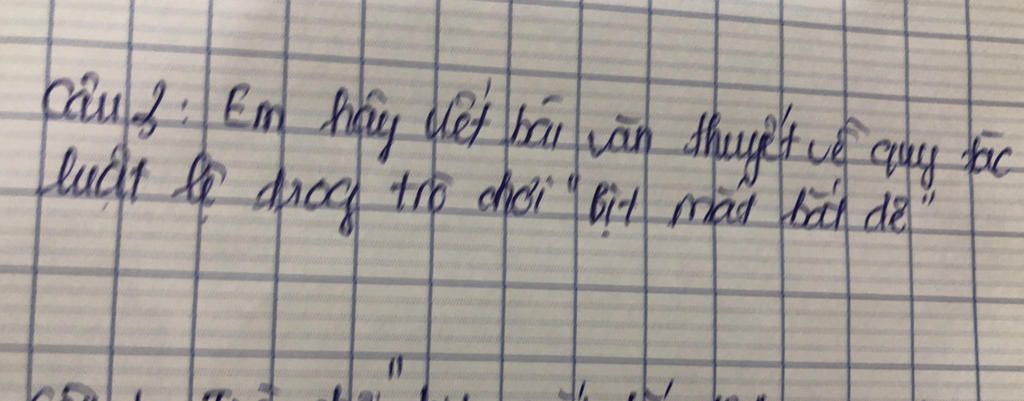 Câu 3: Em hãy viết bài văn thuyết về quy tắc
luật lệ trong trò chơi "Bịt mắt bắt dê"